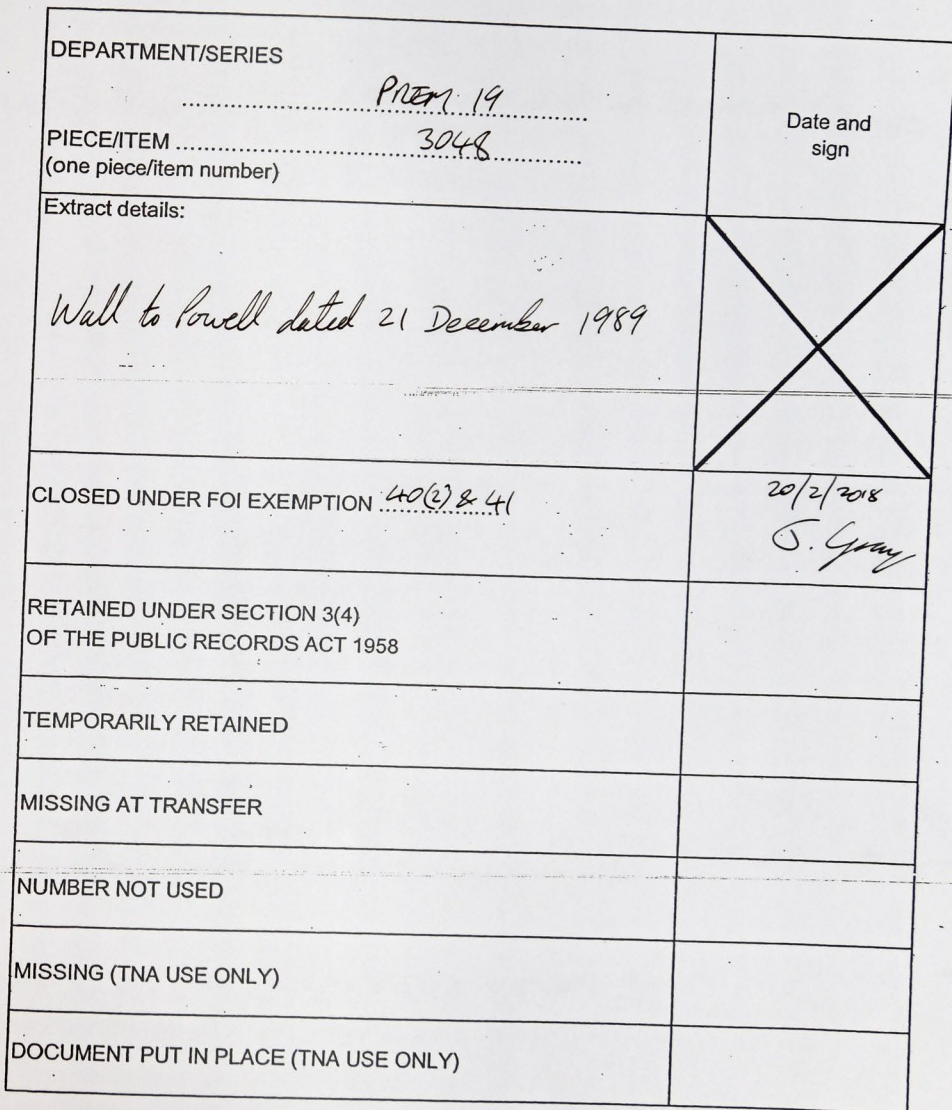 DEPARTMENT/SERIES
PREM 19
PIECE/ITEM 3048
(one piece/item number)
Date and
sign
Extract details:
Wall to Powell dated 21 December 1989
CLOSED UNDER FOI EXEMPTION 40(2) & 41
20/2/2018
J. Gray
RETAINED UNDER SECTION 3(4)
OF THE PUBLIC RECORDS ACT 1958
TEMPORARILY RETAINED
MISSING AT TRANSFER
NUMBER NOT USED
MISSING (TNA USE ONLY)
DOCUMENT PUT IN PLACE (TNA USE ONLY)